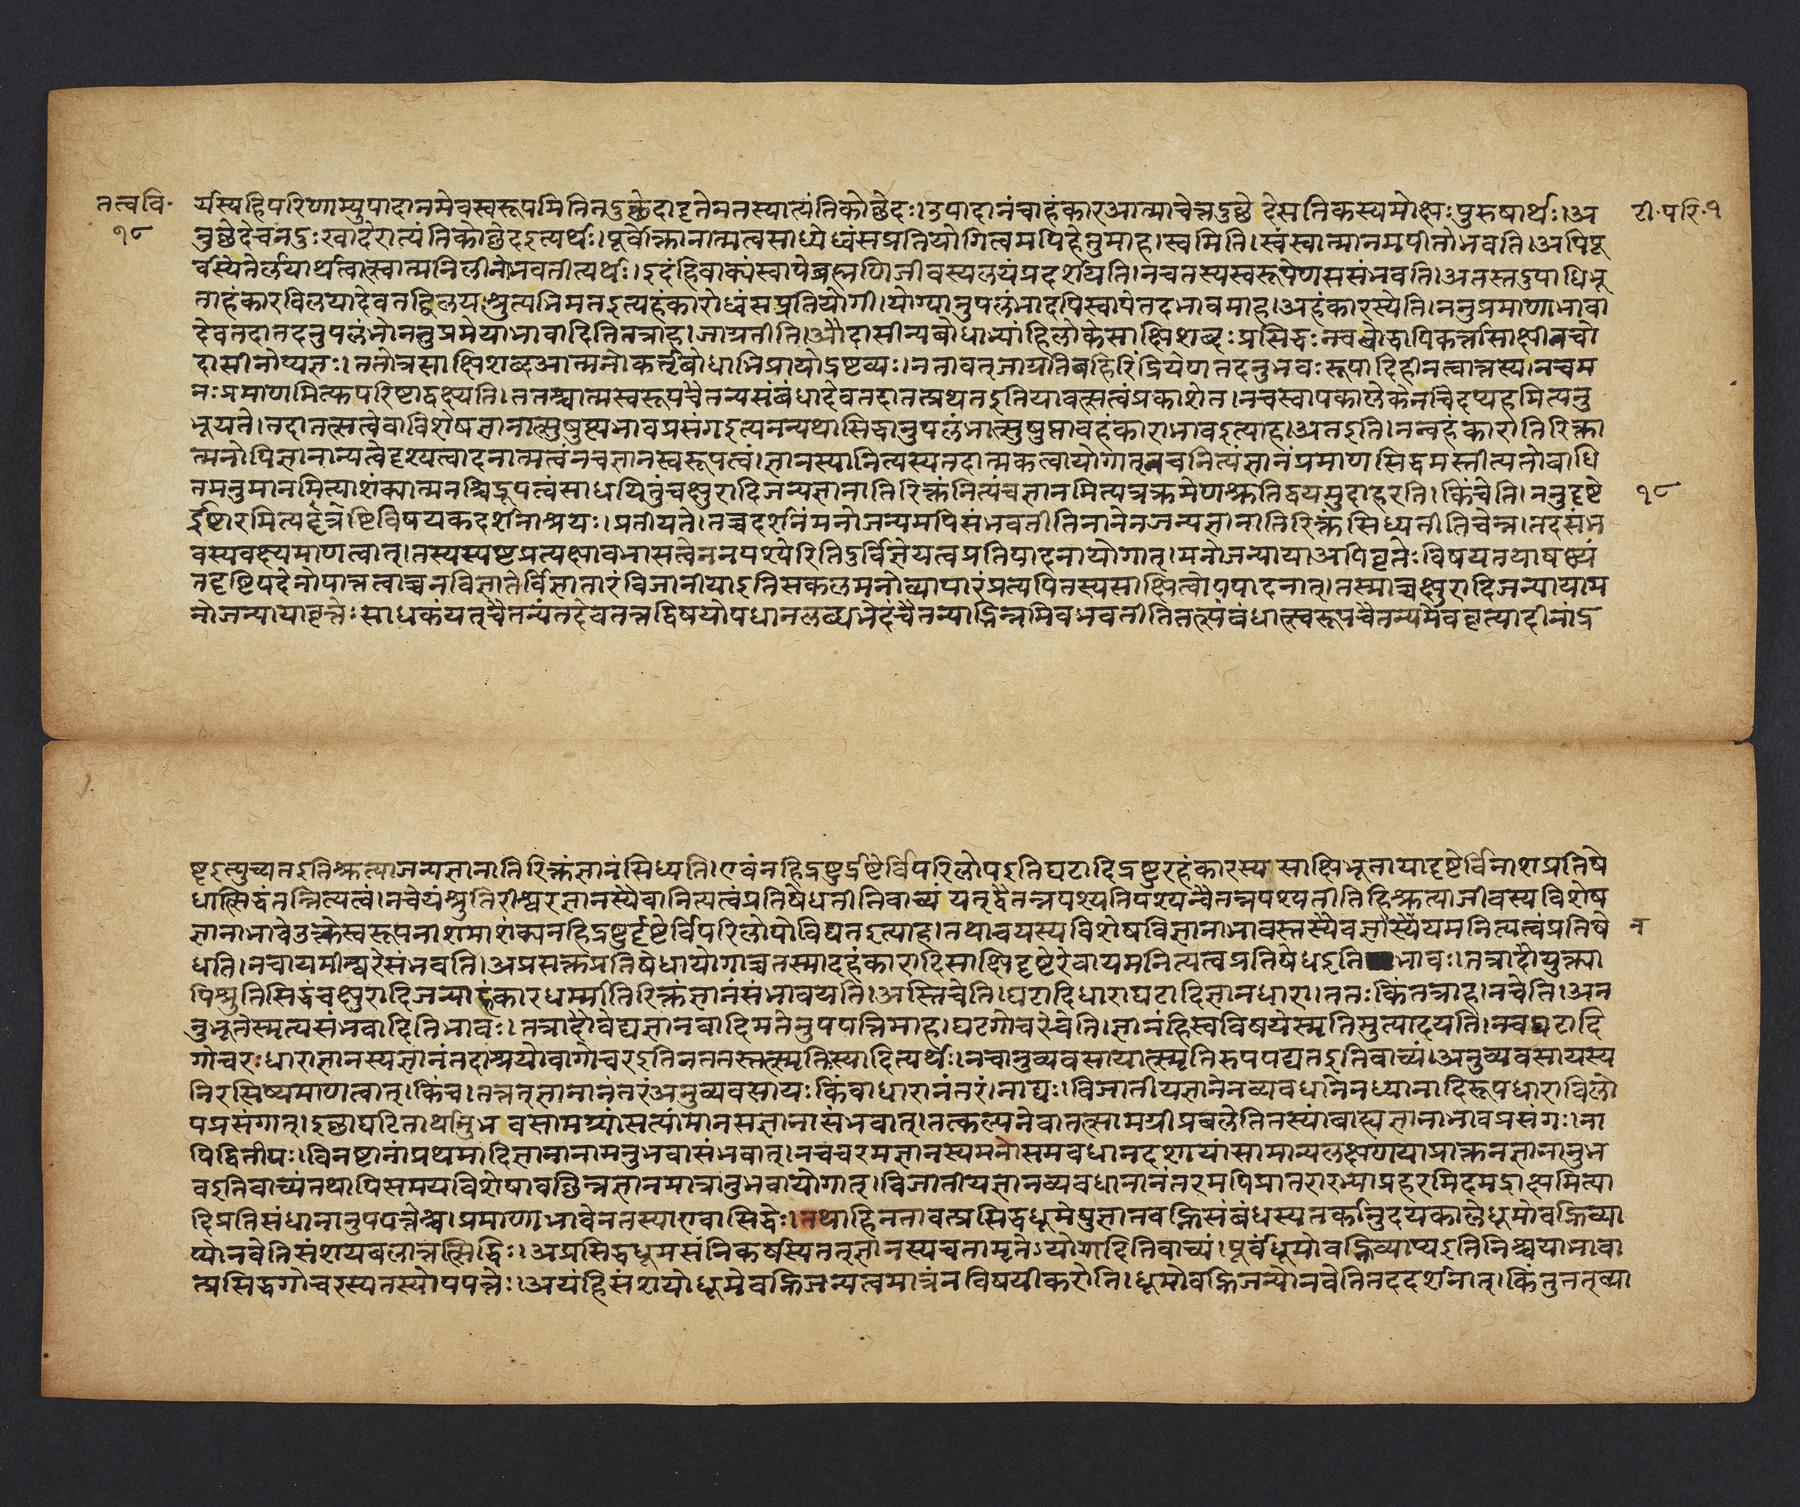 तत्ववि॰ १८
टी॰ परि॰ १
र्यस्यहिपरिणाम्युपादानमेवस्वरूपमितितदुच्छेदादृतेमतस्यात्यंतिकोछेदः।उपादानंचाहंकारआत्माचेत्तदुछेदेसतिकस्यमोक्षःपुरुषार्थः।अ
नुछेदेचनदुःखादेरात्यंतिकोछेदइत्यर्थः।पूर्वोक्तानात्मत्वसाध्येध्वंसप्रतियोगित्वमपिहेतुमाह।स्वमिति।स्वंस्वात्मानमपीतोभवति।अपिपू
र्वस्येतेर्लयार्थत्वात्स्वात्मनिलीनोभवतीत्यर्थः।इदंहिवाक्यंस्वापेब्रह्मणिजीवस्यलयंप्रदर्शयति।नचतस्यस्वरूपेणससंभवति।अतस्तदुपाधिभू
ताहंकारविलयादेवतद्विलयःश्रुत्यभिमतइत्यहंकारोध्वंसप्रतियोगी।योग्यानुपलंभादपिस्वापेतदभावमाह।अहंकारस्येति।ननुप्रमाणाभावा
देवतदातदनुपलंभोनतुप्रमेयाभावादितितत्राह।जाग्रतीति।औदासीन्यबोधाभ्यांहिलोकेसाक्षिशब्दःप्रसिद्धःनचबोद्धापिकर्त्तासाक्षीनचो
दासीनोप्यज्ञः।ततोत्रसाक्षिशब्दआत्मनोकर्तृबोधाभिप्रायोद्रष्टव्यः।नतावत्जाग्रतिबहिरिंद्रियेणतदनुभवःरूपादिहीनत्वात्तस्य।नचम
नःप्रमाणमित्युपरिष्टाद्वक्ष्यति।ततश्चात्मस्वरूपचैतन्यसंबंधादेवतदातत्प्रथतइतियावत्सत्वंप्रकाशेत।नचस्वापकालेकेनचिदप्यहमित्यनु
भूयते।तदातत्सत्वेवाविशेषज्ञानात्सुषुप्त्यभावप्रसंगइत्यनन्यथासिद्धानुपलंभात्सुषुप्तावहंकाराभावइत्याह।अतइति।नन्वहंकारोतिरिक्ता
त्मनोपिज्ञानान्यत्वेदृश्यत्वादनात्मत्वंनचज्ञानस्वरूपत्वं।ज्ञानस्यानित्यस्यतदात्मकत्वायोगात्नचनित्यंज्ञानंप्रमाणसिद्धमस्तीत्यतोबाधि
तमनुमानमित्याशंक्यात्मनश्चिद्रूपत्वंसाधयितुंचक्षुरादिजन्यज्ञानातिरिक्तंनित्यंचज्ञानमित्यत्रक्रमेणश्रुतिद्वयमुदाहरति।किंचेति।ननुदृष्टे
१८
र्द्रष्टारमित्यत्रदृष्टिविषयकदर्शनाश्रयः।प्रतीयते।तच्चदर्शनंमनोजन्यमपिसंभवतीतिनानेनजन्यज्ञानातिरिक्तंसिध्यतीतिचेन्न।तदसंभ
वस्यवक्ष्यमाणत्वात्।तस्यस्पष्टप्रत्यक्षावभासत्वेननपश्येरितिदुर्विज्ञेयत्वप्रतिपादनायोगात्।मनोजन्यायाअपिवृत्तेःविषयतयाषष्ठ्यं
तदृष्टिपदेनोपात्तत्वाच्चनविज्ञातेर्विज्ञातारंविजानीयाइतिसकलमनोव्यापारंप्रत्यपितस्यसाक्षित्वोपपादनात्।तस्माच्चक्षुरादिजन्यायाम
नोजन्यायावृत्तेःसाधकंयत्चैतन्यंतदेचतत्तद्विषयोपधानलब्धभेदंचैतन्याद्भिन्नमिवभवतीतितत्संबंधात्स्वरूपचैतन्यमेववृत्त्यादीनांद्र
ष्टृइत्युच्यतइतिश्रुत्याजन्यज्ञानातिरिक्तंज्ञानंसिध्यति।एवंनहिद्रष्टुर्दृष्टेर्विपरिलोपइतिघटादिद्रष्टुरहंकारस्यसाक्षिभूतायादृष्टेर्विनाशप्रतिषे
धात्सिद्धंतन्नित्यत्वं।नचेयंश्रुतिरीश्वरज्ञानस्यैवानित्यत्वंप्रतिषेधतीतिवाच्यं यत्द्वैतन्नपश्यतिपश्यन्वैतन्नपश्यतीतिहिश्रुत्याजीवस्यविशेष
ज्ञानाभावेउक्तेस्वरूपनाशमाशंक्यनहिद्रष्टुर्दृष्टेर्विपरिलोपोविद्यतइत्याह।तथाचयस्यविशेषविज्ञानाभावस्तस्यैवज्ञास्यैयमनित्यत्वंप्रतिषे न
धति।नचायमीश्वरेसंभवति।अप्रसक्तप्रतिषेधायोगाच्चतस्मादहंकारादिसाक्षिदृष्टेरेवायमनित्यत्वप्रतिषेधइतिभावः।तत्रादौयुक्त्या
पिश्रुतिसिद्धंचक्षुरादिजन्याहंकारधर्मातिरिक्तंज्ञानंसंभावयति।अस्तिचेति।घटादिधाराघटादिज्ञानधारा।ततःकिंतत्राह।नचेति।अन
नुभूतेस्मृत्यसंभवादितिभावः।तत्रादौवेद्यज्ञानवादिमतेनुपपत्तिमाह।घटगोचरेचेति।ज्ञानंहिस्वविषयेस्मृतिमुत्पादयति।नचघटादि
गोचरःधाराज्ञानस्यज्ञानंतदाश्रयोवागोचरइतिनततस्तत्स्मृतिःस्यादित्यर्थः।नचानुव्यवसायात्स्मृतिरुपपद्यतइतिवाच्यं।अनुव्यवसायस्य
निरसिष्यमाणत्वात्।किंच।तत्तत्ज्ञानानंतरंअनुव्यवसायःकिंवाधारानंतरं।नाद्यः।विजातीयज्ञानेनव्यवधानेनध्यानादिरूपधाराविलो
पप्रसंगात्।इछाघटितार्थानुभवसामग्र्यांसत्यांमानसज्ञानासंभवात्।तत्कल्पनेवातत्सामग्रीप्रबलेतितस्यांबाह्यज्ञानाभावप्रसंगः।ना
पिद्वितीयः।विनष्टानांप्रथमादिज्ञानानामनुभवासंभवात्।नचचरमज्ञानस्यमनोसमवधानदशायांसामान्यलक्षणयाप्राक्तनज्ञानानुभ
वइतिवाच्यंतथापिसमयविशेषावछिन्नज्ञानमात्रानुभवायोगात्।विजातीयज्ञानव्यवधानानंतरमपिप्रातरारभ्याप्रहरमिदमद्राक्षमित्या
दिप्रतिसंधानानुपपत्तेश्च।प्रमाणाभावेनतस्याएवासिद्धेः।तथाहिनतावत्प्रसिद्धधूमेषुज्ञानवह्निसंबंधस्यतर्कानुदयकालेधूमोवह्निव्या
प्योनवेतिसंशयबलात्तत्सिद्धिः।अप्रसिद्धधूमसंनिकर्षस्यतत्ज्ञानस्यचतामृतेऽयोगादितिवाच्यं।पूर्वंधूमोवह्निव्याप्यइतिनिश्चयाभावा
त्प्रसिद्धगोचरस्यतस्योपपत्तेः।अयंहिसंशयोधूमेवह्निजन्यत्वमात्रंनविषयीकरोति।धूमोवह्निजन्योनवेतितददर्शनात्।किंतुतत्व्या